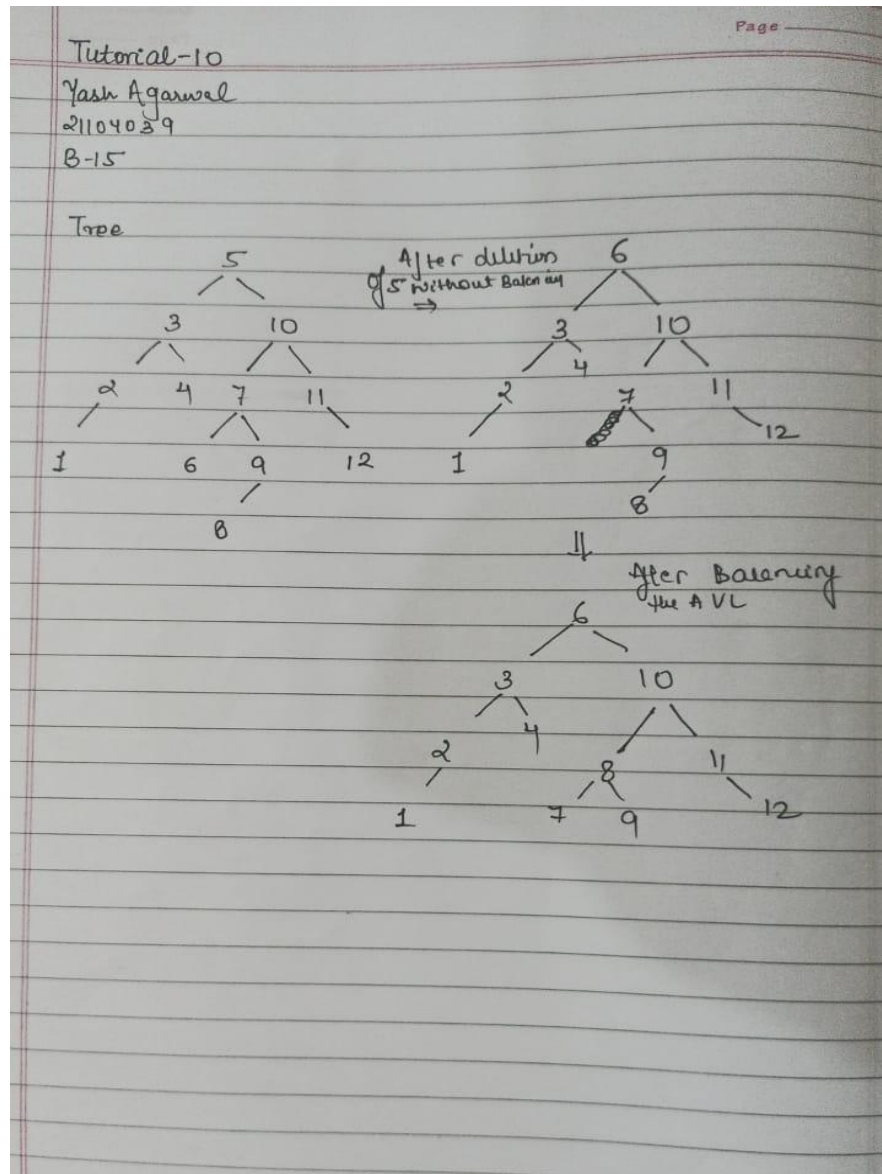 Page
Tutorial-10
Yash Agarwal
21104039
B-15
Tree
5
3 10
2 4 7 11
1 6 9 12
8
After deletion
of 5 without Balancing
6
3 10
2 4 7 11
1 9 12
8
After Balancing
the AVL
6
3 10
2 4 8 11
1 7 9 12